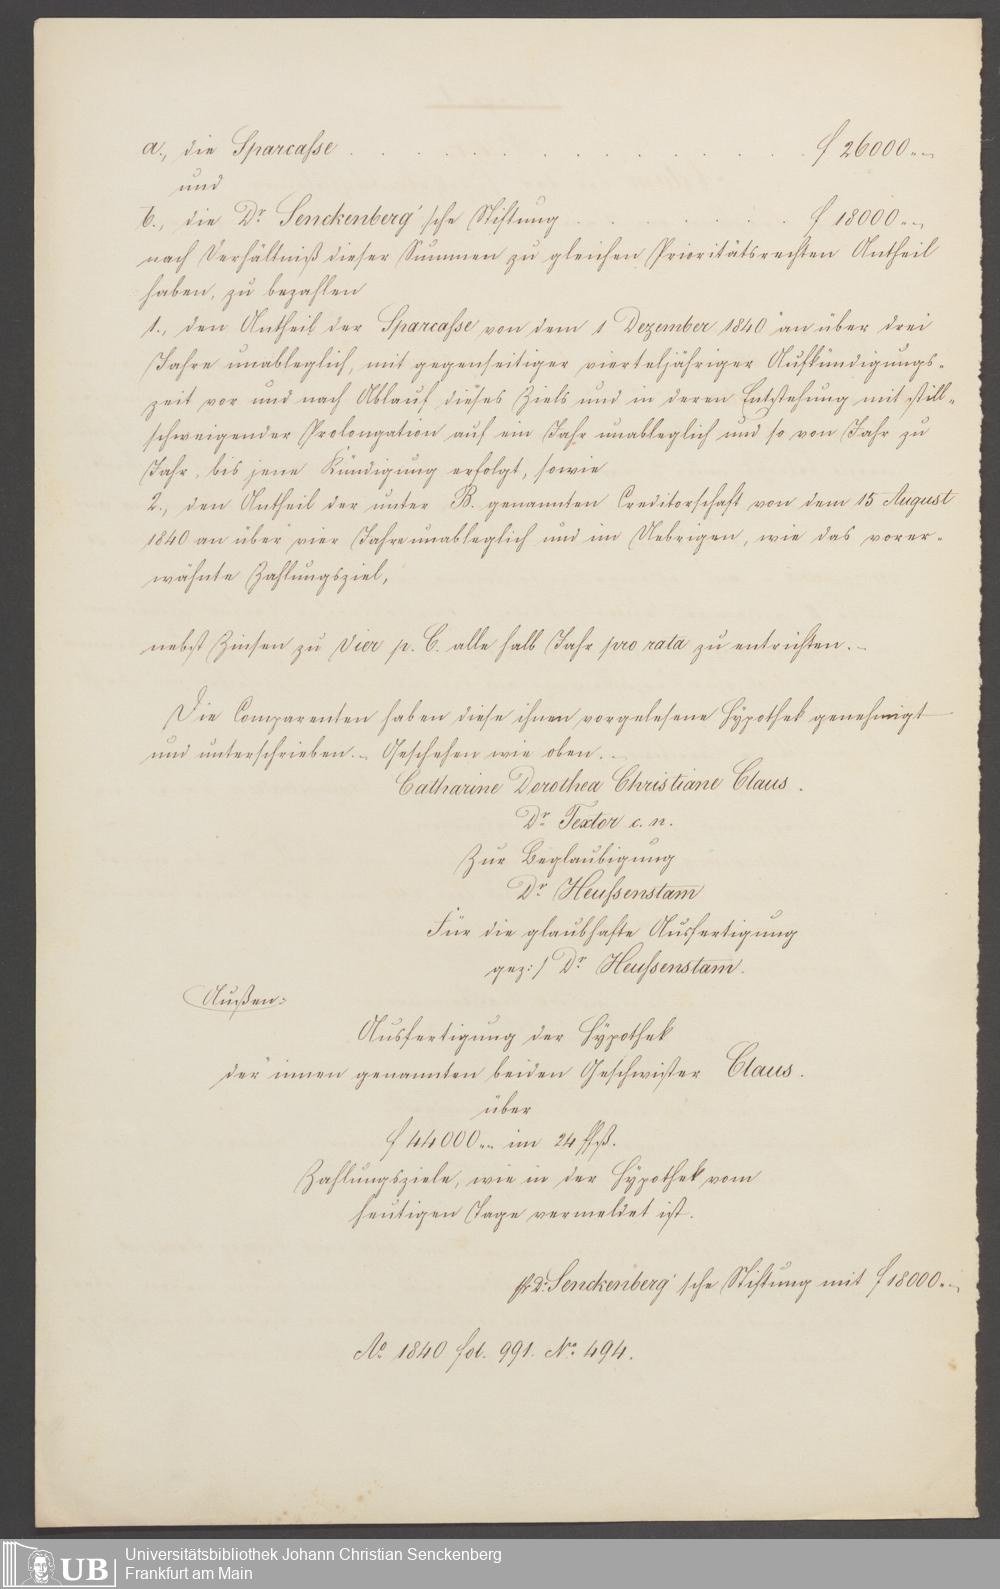 a., die Sparcasse . . . . . . . . . . . . f 26000.„
und
b., die Dr. Senckenberg'sche Stiftung . . . . . . f 18000.„
nach Verhältniß dieser Summen zu gleichen Prioritätsrechten Antheil
haben, zu bezahlen
1., den Antheil der Sparcasse von dem 1 Dezember 1840 an über drei
Jahre unableglich, mit gegenseitiger vierteljähriger Aufkündigungs-
zeit vor und nach Ablauf dieses Ziels und in deren Entstehung mit still-
schweigender Prolongation auf ein Jahr unableglich und so von Jahr zu
Jahr, bis jene Kündigung erfolgt, sowie
2., den Antheil der unter B. genannten Creditorschaft von dem 15 August
1840 an über vier Jahre unableglich und im Uebrigen, wie das vorer-
wähnte Zahlungsziel,
nebst Zinsen zu Vier p. C. alle halb Jahr pro rata zu entrichten.-
Die Comparenten haben diese ihnen vorgelesene Hypothek genehmigt
und unterschrieben.- Geschehen wie oben.-
Catharine Dorothea Christiane Claus.
Dr. Textor c. n.
Zur Beglaubigung
Dr. Heussenstam
Für die glaubhafte Ausfertigung
gez:/ Dr. Heussenstam.
Außen:
Ausfertigung der Hypothek
der innen genannten beiden Geschwister Claus.
über
f 44000.„ im 24 ffß.
Zahlungsziele, wie in der Hypothek vom
heutigen Tage vermeldet ist.
Dr. Senckenberg'sche Stiftung mit f 18000.„
Ao. 1840 fol. 991. No. 494.
UB
Universitätsbibliothek Johann Christian Senckenberg
Frankfurt am Main